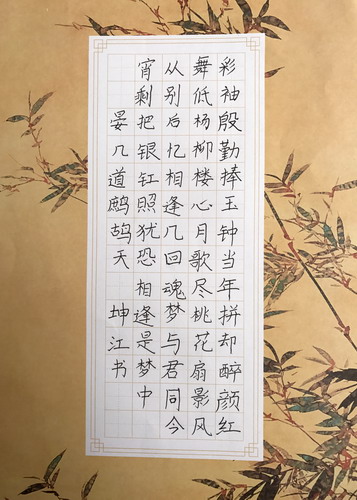 彩袖殷勤捧玉钟当年拼却醉颜红
舞低杨柳楼心月歌尽桃花扇影风
从别后忆相逢几回魂梦与君同今
宵剩把银釭照犹恐相逢是梦中
晏几道鹧鸪天 坤江书